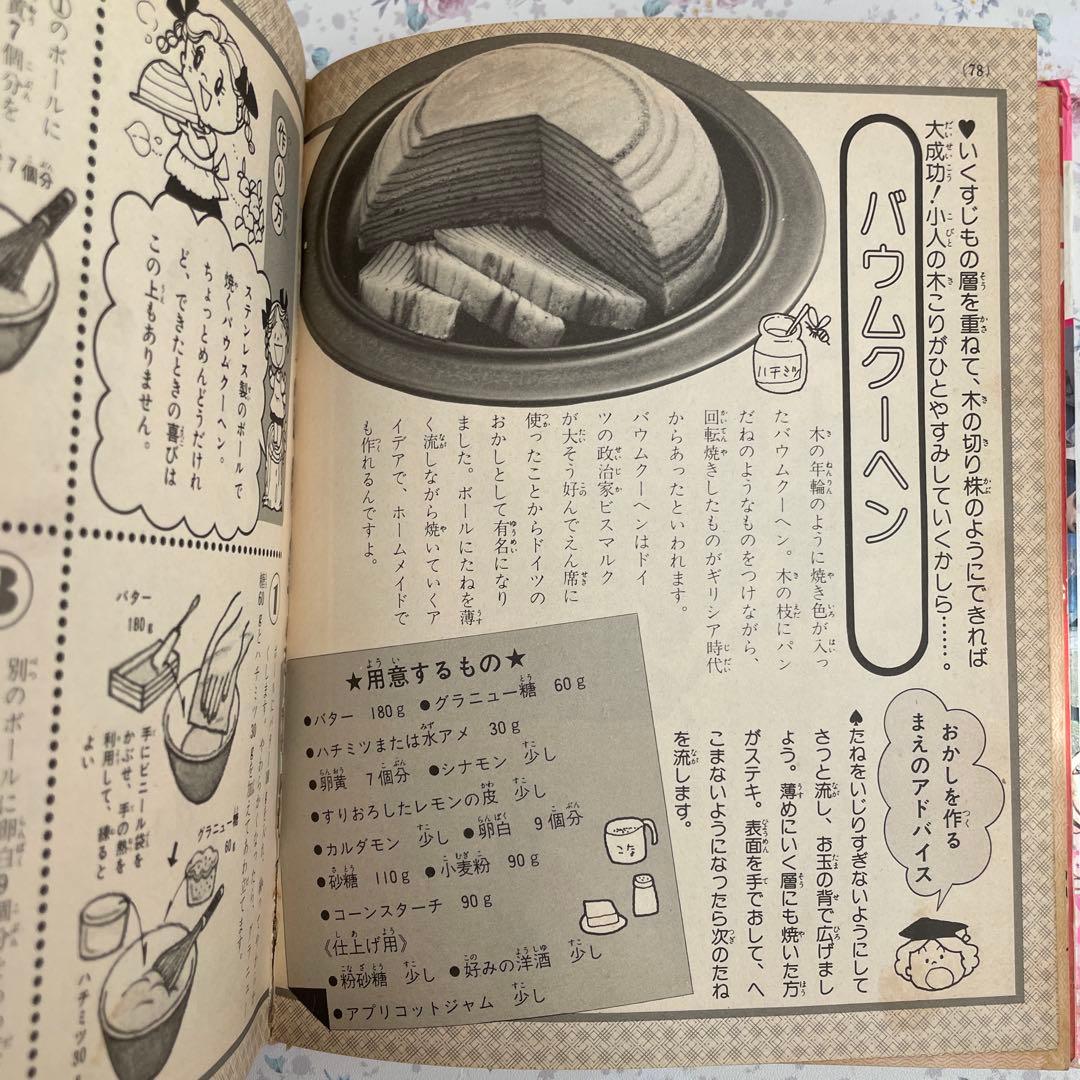 (78)
♥いくすじもの層を重ねて、木の切り株のようにできれば
大成功！小人の木こりがひとやすみしていくかしら……。
バウムクーヘン
ハチミツ
木の年輪のように焼き色が入っ
たバウムクーヘン。木の枝にパン
だねのようなものをつけながら、
回転焼きしたものがギリシア時代
からあったといわれます。
バウムクーヘンはドイ
ツの政治家ビスマルク
が大そう好んでえん席に
使ったことからドイツの
おかしとして有名になり
ました。ボールにたねを薄
く流しながら焼いていくア
イデアで、ホームメイドで
も作れるんですよ。
おかしを作る
まえのアドバイス
♠たねをいじりすぎないようにして
さっと流し、お玉の背で広げまし
ょう。薄めにいく層にも焼いた方
がステキ。表面を手でおして、へ
こまないようになったら次のたね
を流します。
★用意するもの★
●バター 180g ●グラニュー糖 60g
●ハチミツまたは水アメ 30g
●卵黄 7個分 ●シナモン 少し
●すりおろしたレモンの皮 少し
●カルダモン 少し ●卵白 9個分
●砂糖 110g ●小麦粉 90g
●コーンスターチ 90g
《仕上げ用》
●粉砂糖 少し ●好みの洋酒 少し
●アプリコットジャム 少し
こな
作り方
ステンレス製のボールで
焼くバウムクーヘン。
ちょっとめんどうだけれ
ど、できたときの喜びは
この上もありません。
①のボールに
黄7個分を
7個分
1
糖60gとハチミツ30
バター
180g
手にビニール袋を
かぶせ、手の熱を
利用して、練ると
よい
グラニュー糖
60g
ハチミツ30
別のボールに卵白9個